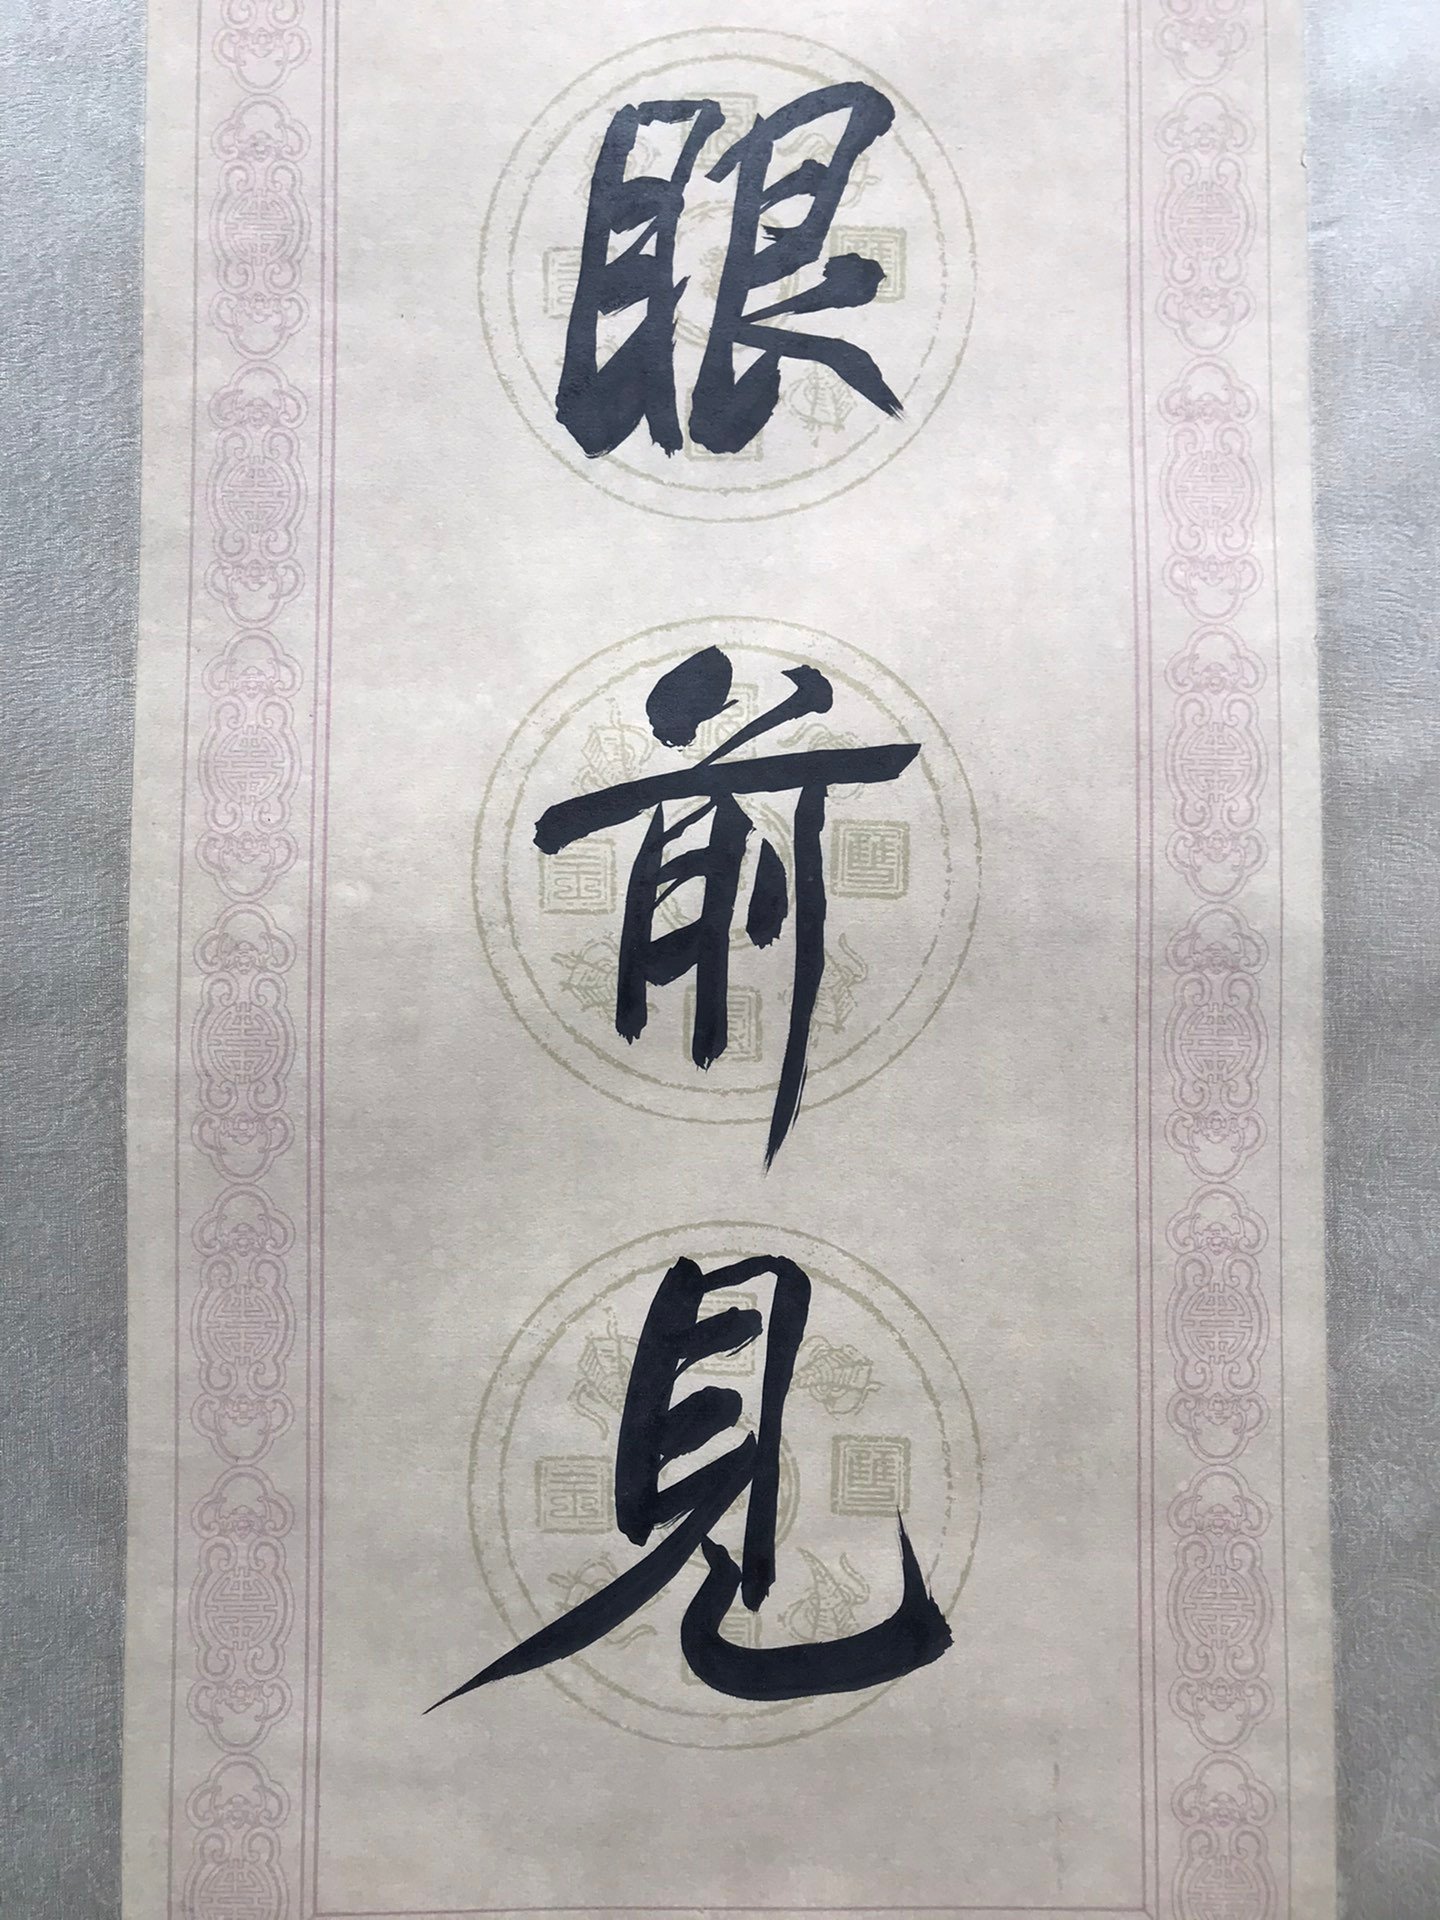 眼前見